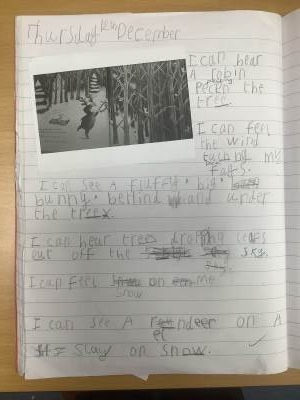 Thursday December
I can hear
A robin
pecking the
tree.
I can feel
the wind
my
I can see A fluffey big
bunny behind and under
the tree.
I can hear trees droping leafs
out off the sky.
I can feel on me
snow
I can see A on A
slay on snow.